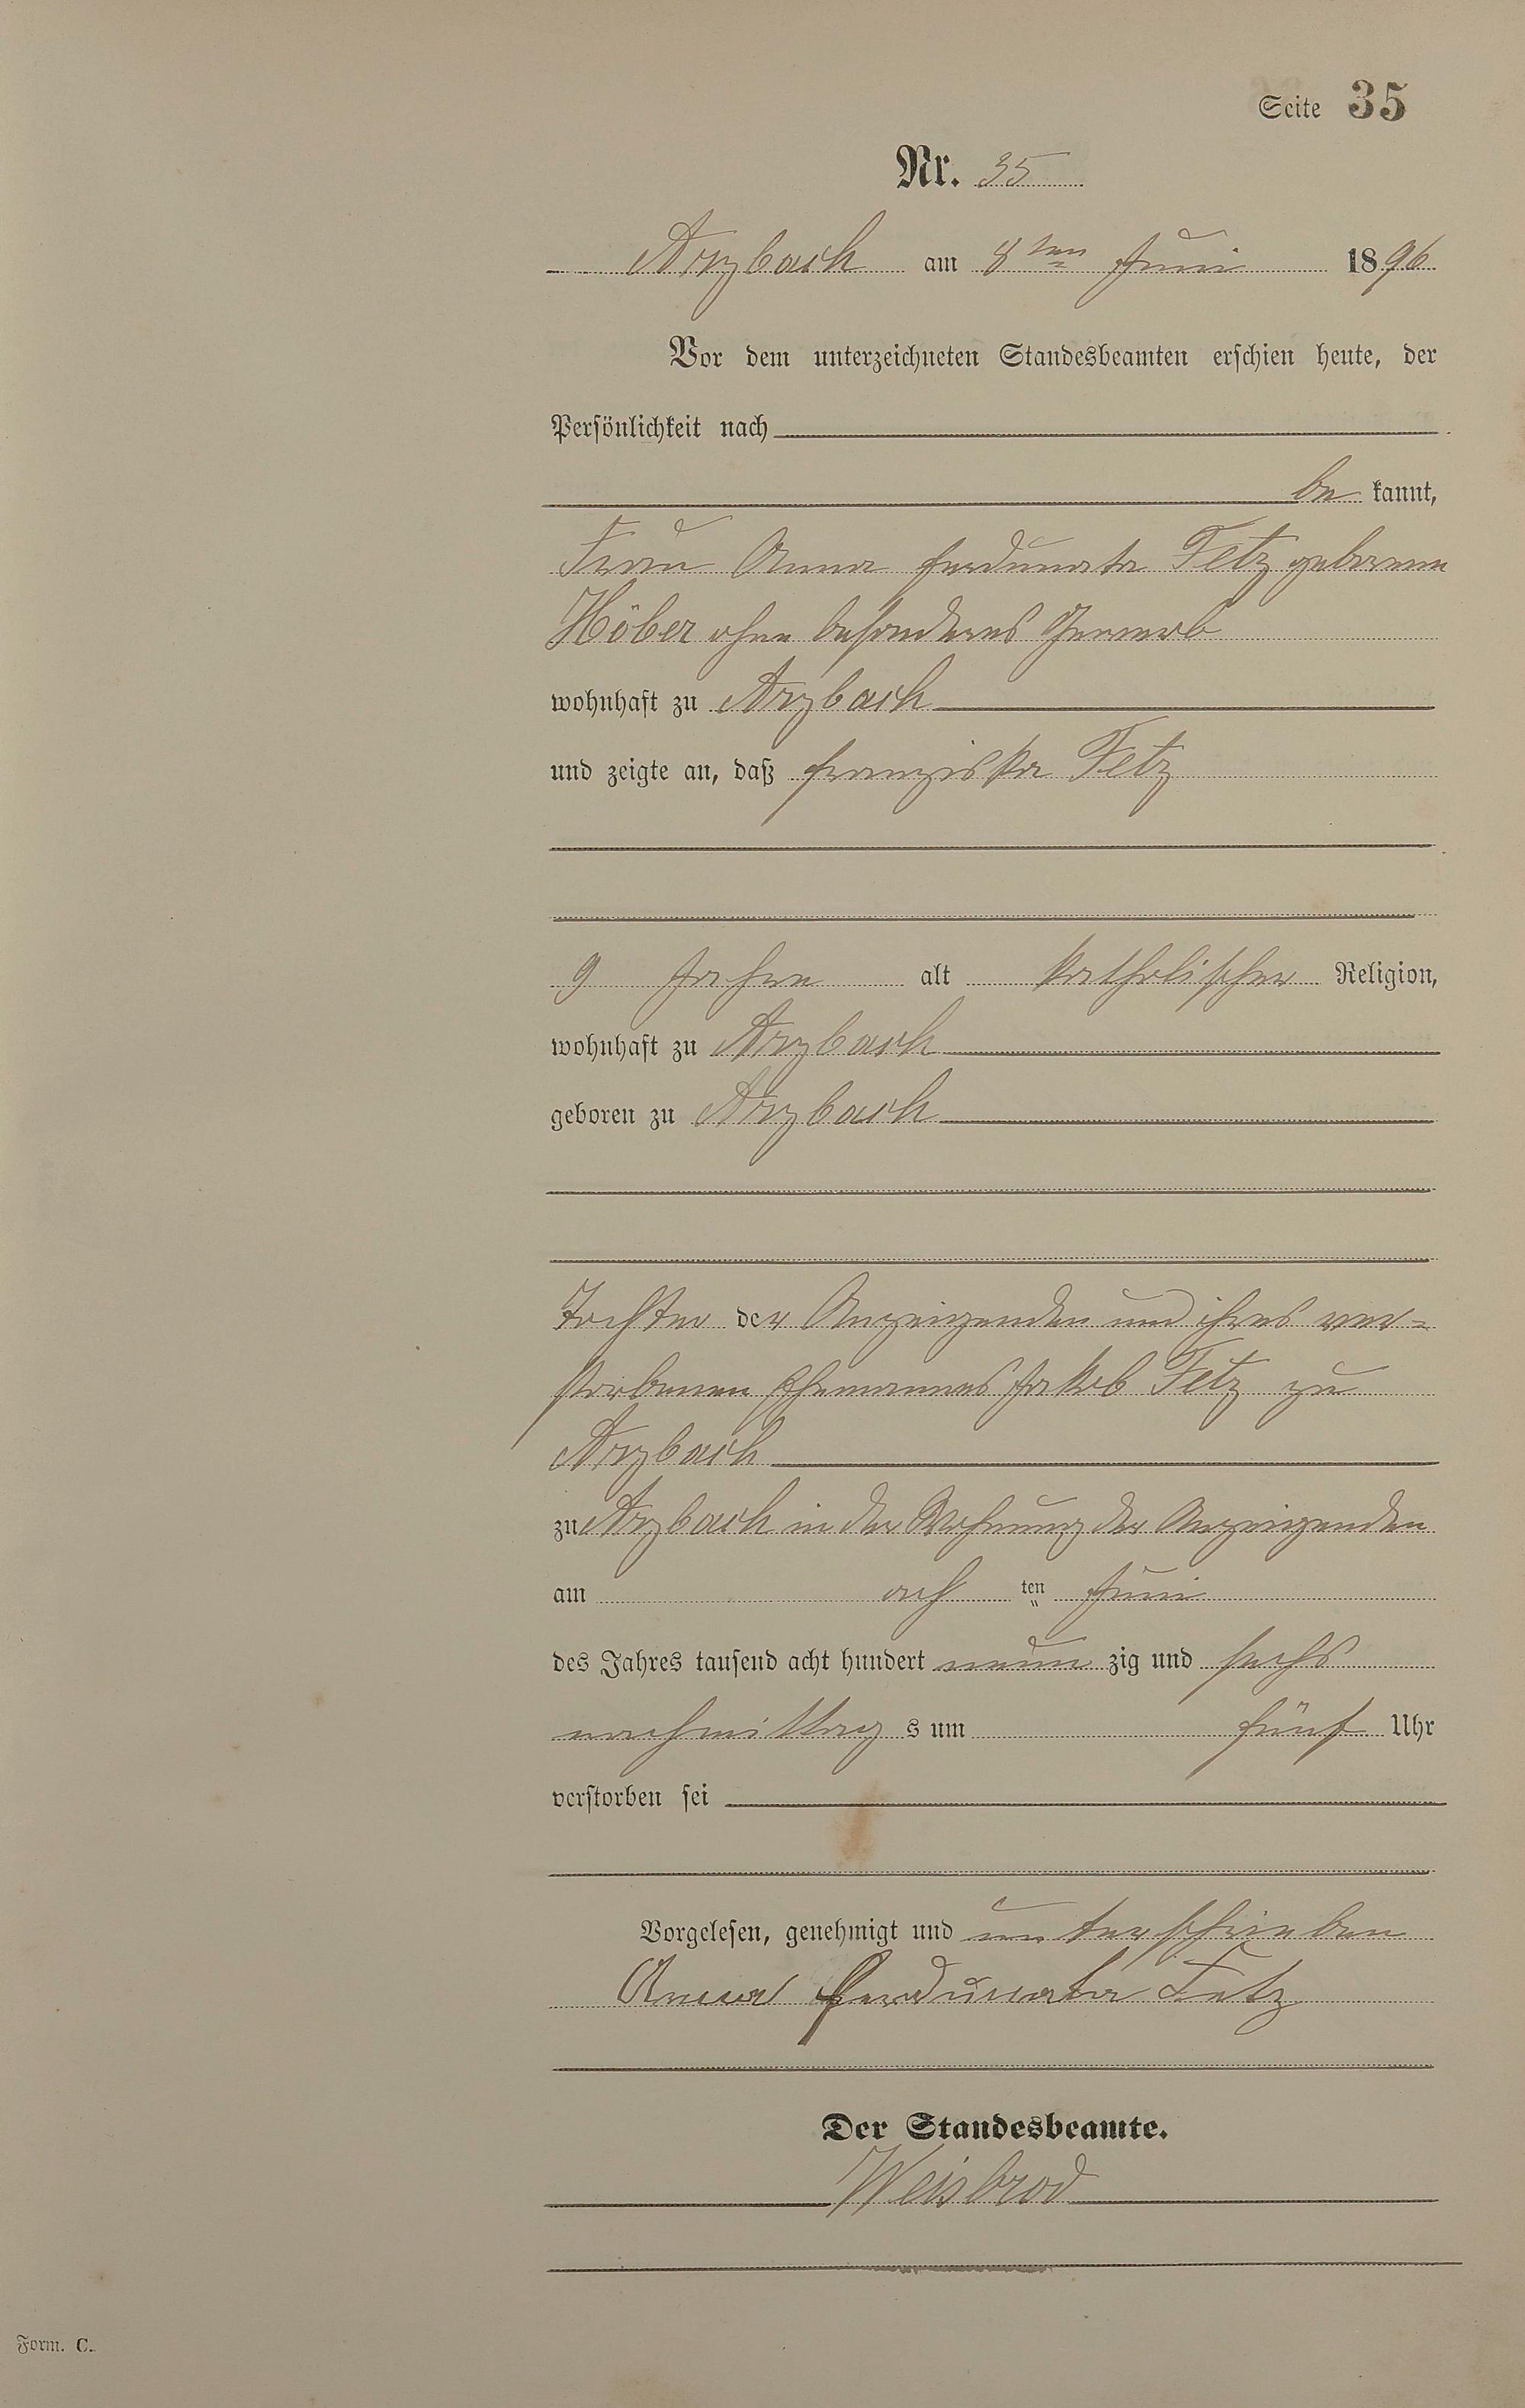 Seite 35
Nr. 35
Arzbach am 8ten Juni 1896
Vor dem unterzeichneten Standesbeamten erschien heute, der
Persönlichkeit nach
be kannt,
Frau Anna Fordunata Fetz geborene
Höber ohne besonderes Gewerb
wohnhaft zu Arzbach
und zeigte an, daß Franziska Fetz
9 Jahre alt katholischer Religion,
wohnhaft zu Arzbach
geboren zu Arzbach
Tochter der Anzeigenden und ihres ver=
storbenen Ehemannes Jakob Fetz zu
Arzbach
zu Arzbach in der Wohnung der Anzeigenden
am ach ten Juni
des Jahres tausend acht hundert neun zig und sechs
nachmittag s um fünf Uhr
verstorben sei
Vorgelesen, genehmigt und unterschrieben
Anna Fordunata Fetz
Der Standesbeamte.
Weisbrod
Form. C.